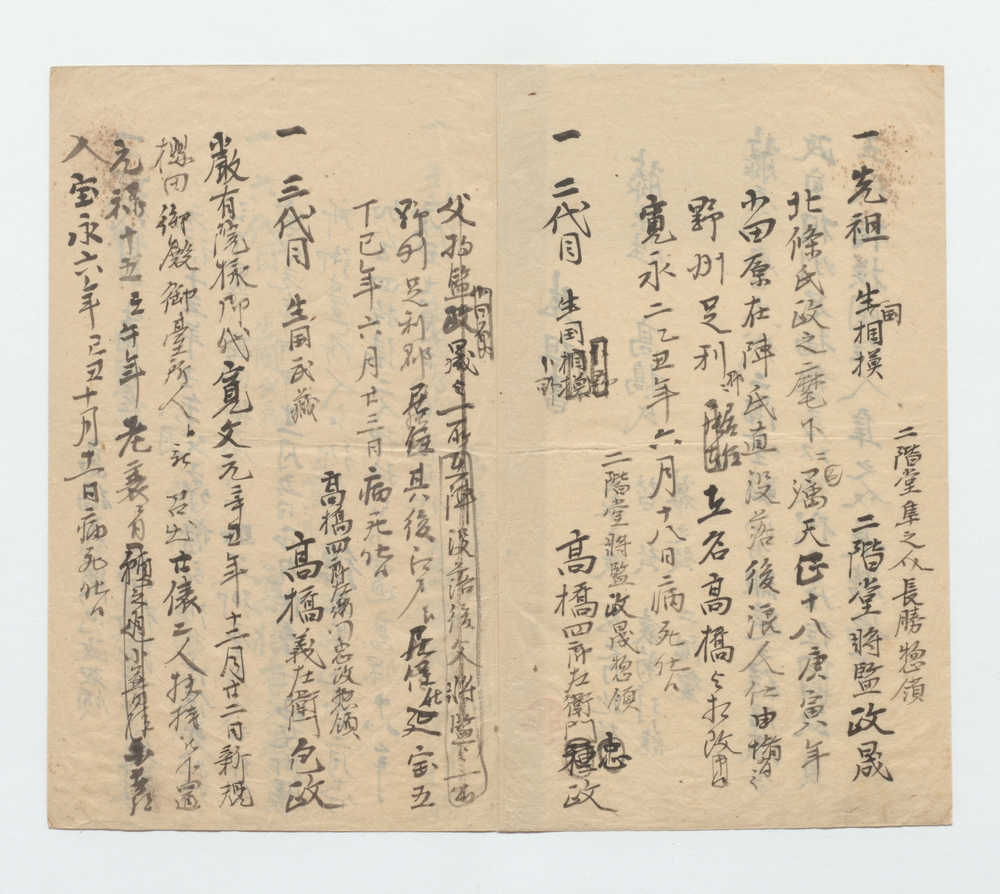 二階堂隼之介長勝惣領
一 先祖 生国相模 二階堂將監政晟
北條氏政之麾下ニ而属天正十八庚寅年
小田原在陣氏直没落後浪人仁由
野州足利郡居住立名高橋与相改申
寛永二乙丑年六月十八日病死仕
二階堂將監政晟惣領
一 二代目 生国相模 小田 高橋四郎左衛門忠政
父將監政晟与一所在陣没落後父將監与
同前
野州足利郡居住其後江戸居住仕延宝五
丁巳年六月廿三日病死仕
高橋四郎左衛門忠政惣領
一 三代目 生国武藏 高橋義左衛門包政
嚴有院樣御代寛文元辛丑年十二月廿二日新規
櫻田御殿御臺所人被召出廿俵二人扶持被下置
元禄十五壬午年老衰有
入宝永六年己丑十月十一日病死仕